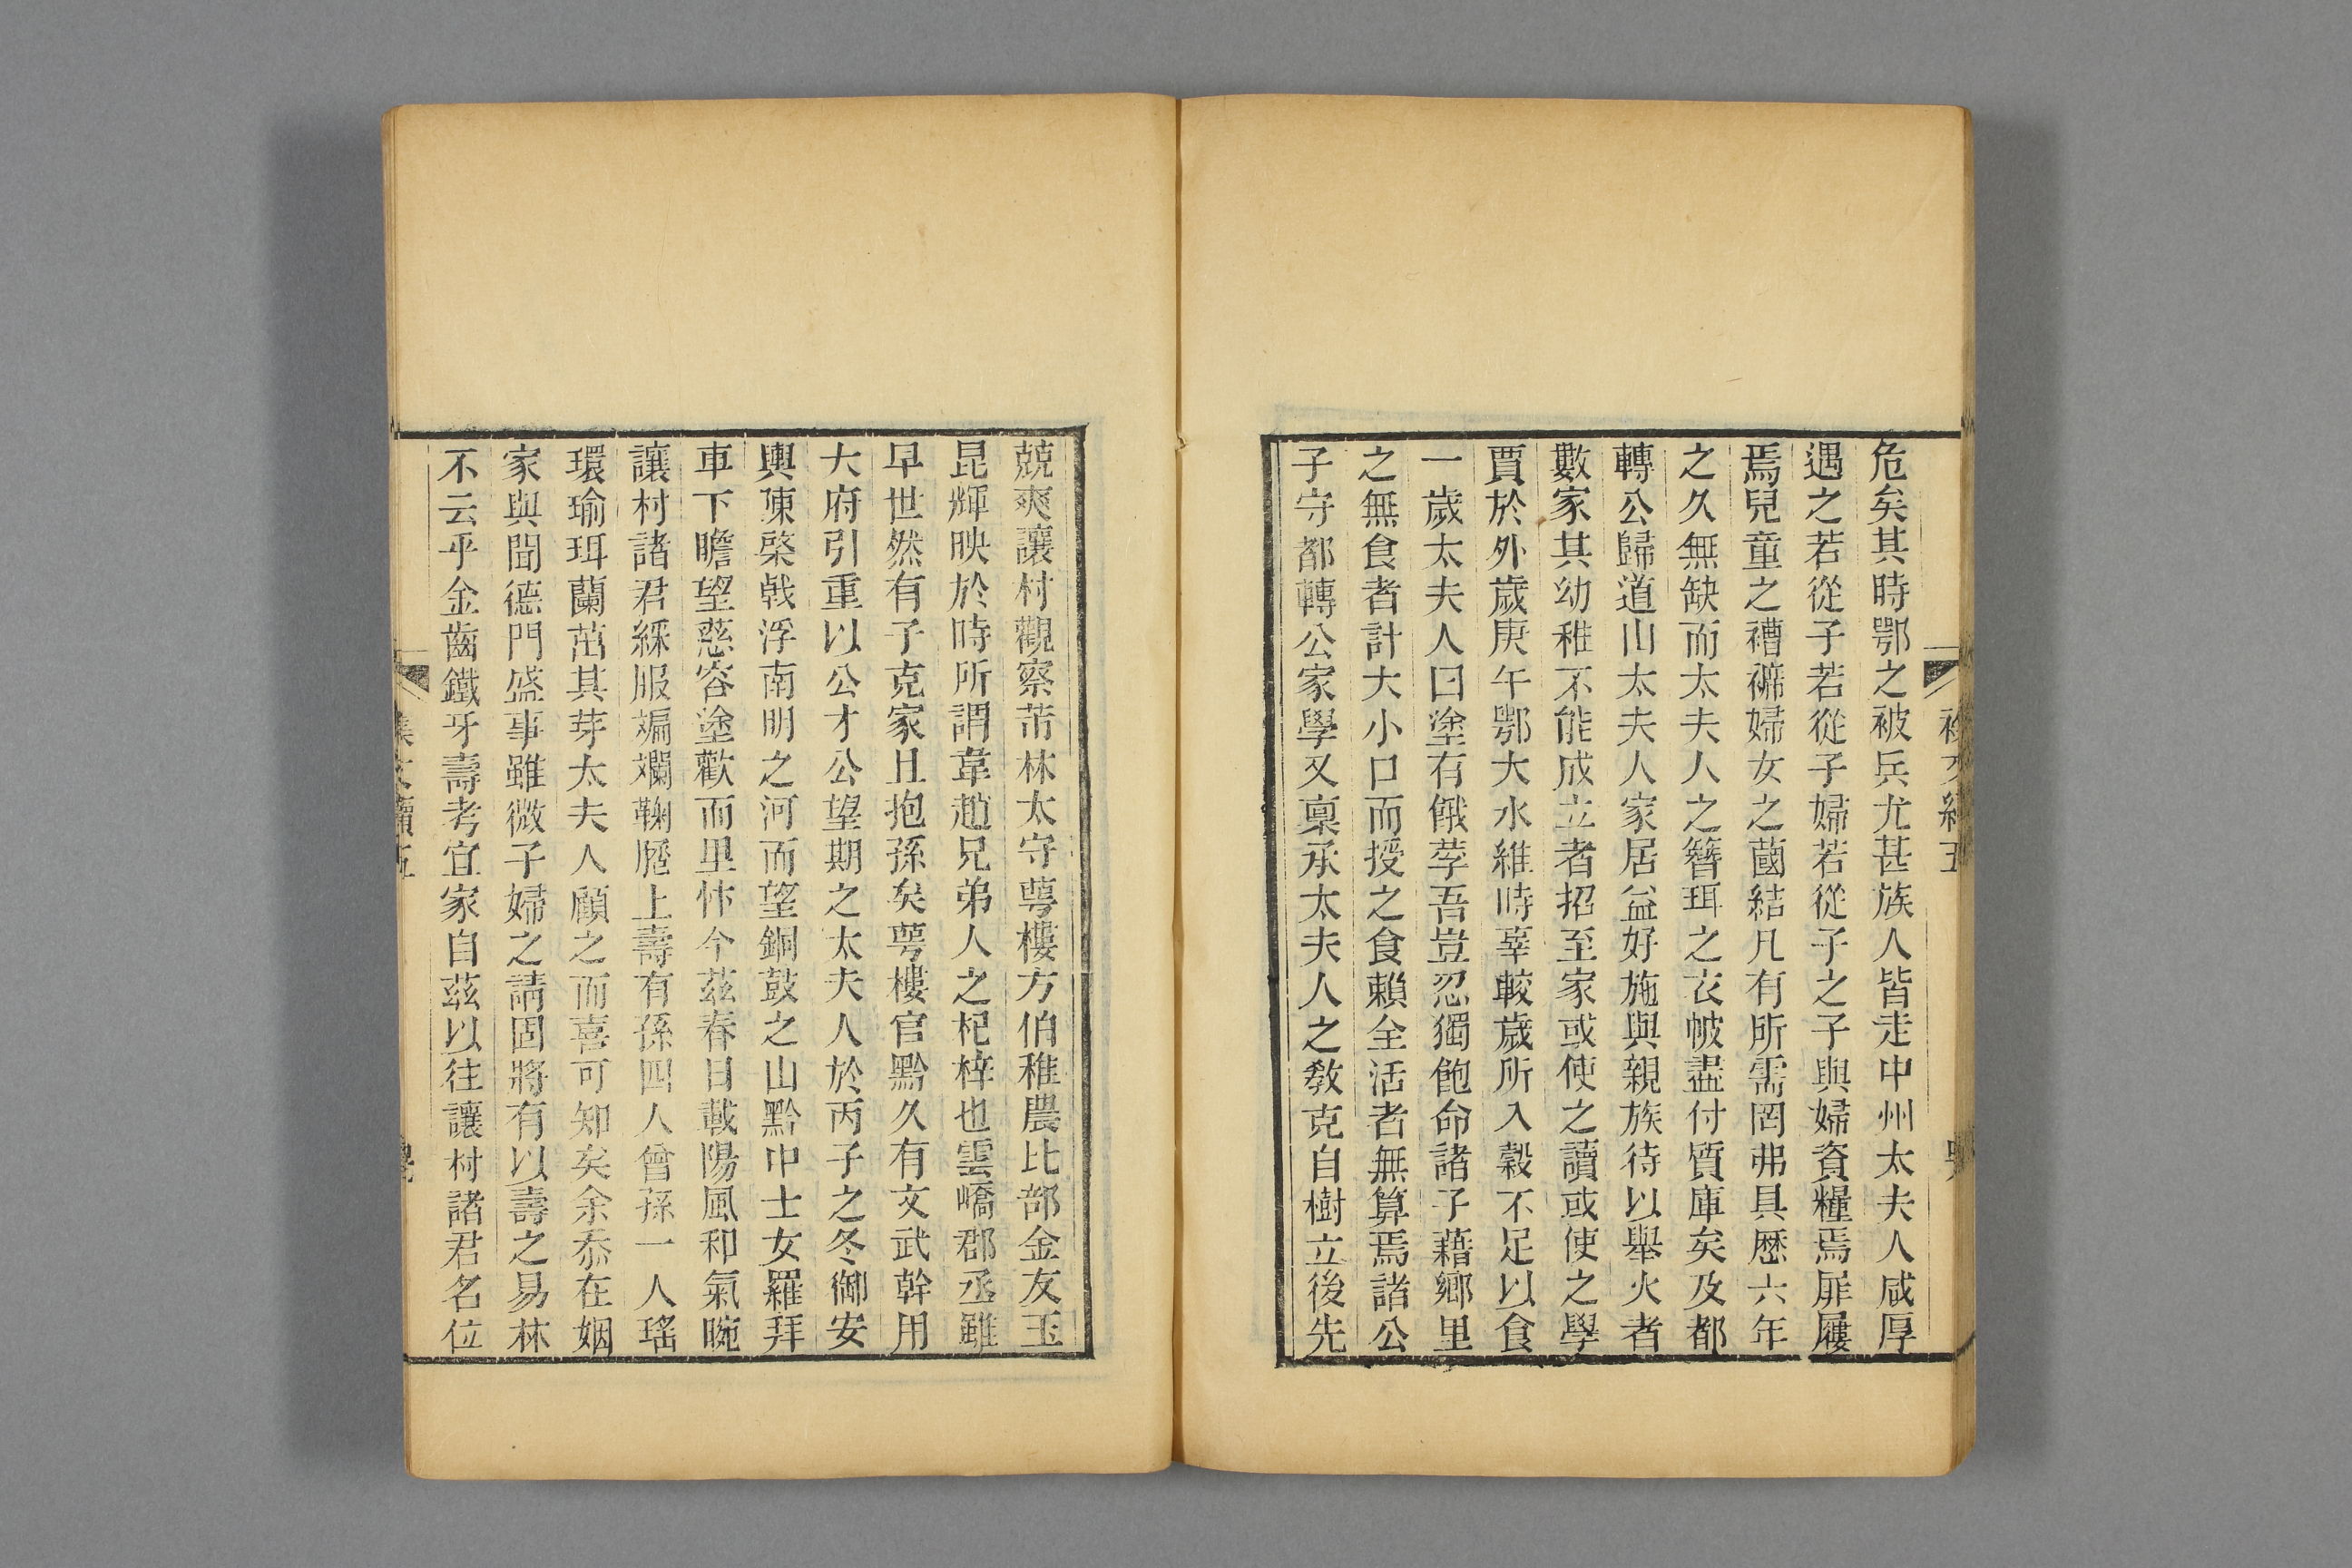 危矣其時鄂之被兵尤甚族人皆走中州太夫人咸厚
遇之若從子若從子婦若從子之子與婦資糧焉屝屨
焉兒童之襸褯婦女之蔮結凡有所需罔弗具歷六年
之久無缺而太夫人之簪珥之衣帔盡付質庫矣及都
轉公歸道山太夫人家居益好施與親族待以舉火者
數家其幼稚不能成立者招至家或使之讀或使之學
賈於外歲庚午鄂大水維時辜較歲所入穀不足以食
一歲太夫人曰塗有餓莩吾豈忍獨飽命諸子藉鄉里
之無食者計大小口而授之食賴全活者無算焉諸公
子守都轉公家學又稟承太夫人之教克自樹立後先
競爽讓村觀察芾林太守蕚樓方伯稚農比部金友玉
昆輝映於時所謂韋趙兄弟人之杞梓也雲嶠郡丞雖
早世然有子克家且抱孫矣蕚樓官黔久有文武幹用
大府引重以公才公望期之太夫人於丙子之冬御安
輿陳棨戟浮南明之河而望銅鼓之山黔中士女羅拜
車下瞻望慈容塗歡而里忭今茲春日載陽風和氣晼
讓村諸君綵服斒斕鞠𦜕上壽有孫四人曾孫一人瑤
環瑜珥蘭茁其芽太夫人顧之而喜可知矣余忝在姻
家與聞德門盛事雖微子婦之請固將有以壽之易林
不云乎金齒鐵牙壽考宜家自茲以往讓村諸君名位